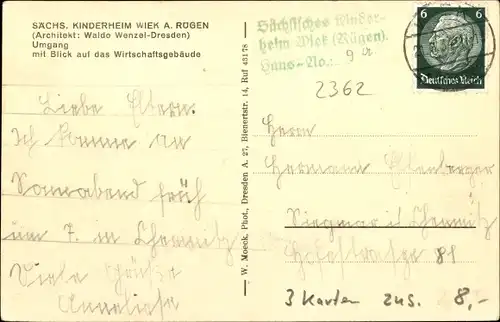 SÄCHS. KINDERHEIM WIEK A. RÜGEN
(Architekt: Waldo Wenzel-Dresden)
Umgang
mit Blick auf das Wirtschaftsgebäude
Liebe Eltern.
Ich komme an
Sonnabend früh
um 7. in Chemnitz
Viele Grüße
Anneliese
W. Moeck, Phot., Dresden A. 27, Bienertstr. 14, Ruf 43178
Sächsisches Kinder-
heim Wiek (Rügen).
Haus-No.: 9
2362
6 6
Deutsches Reich
Herrn
Hermann
Siegmar i Chemnitz
Hofstraße 81
3 Karten zus. 8,-